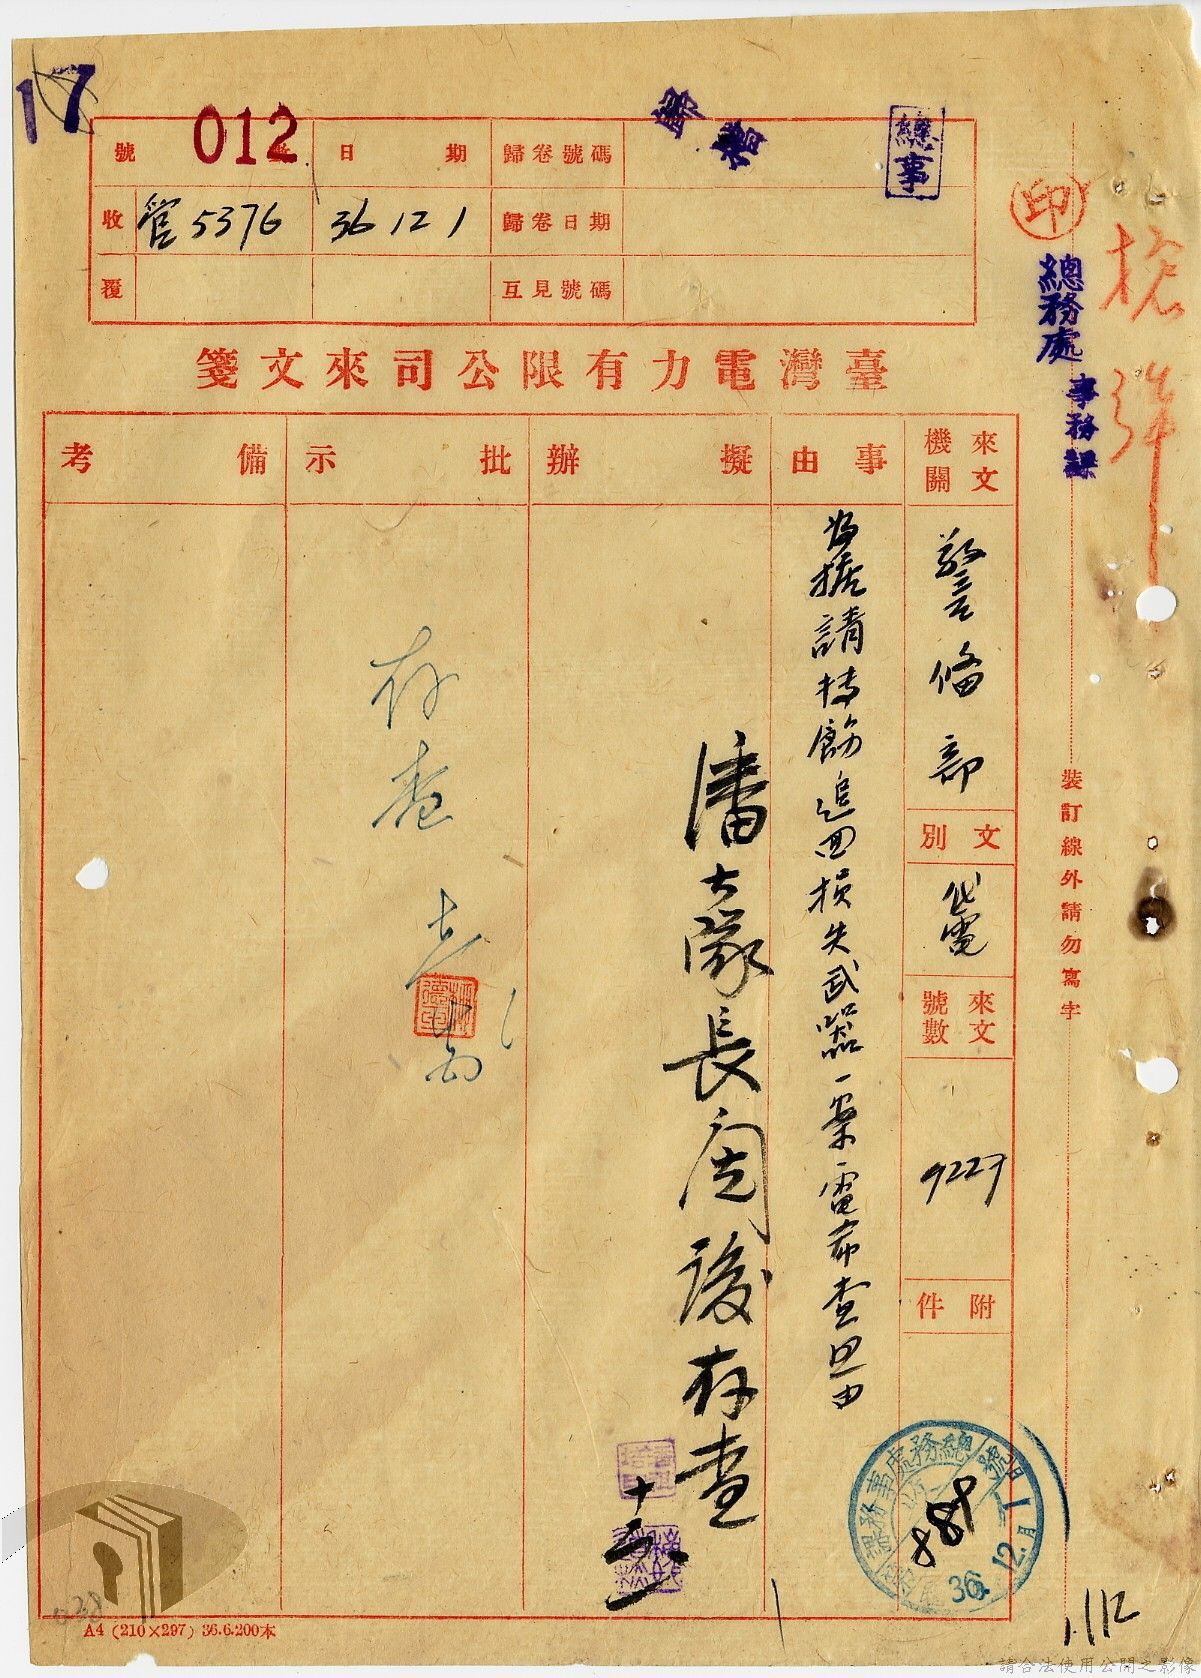 17
012
歸檔
總事
印
槍彈
總務處
事務課
號
日期
歸卷號碼
收
管5376
36 12 1
歸卷日期
覆
互見號碼
臺灣電力有限公司來文箋
來文機關
事由
擬辦
批示
備考
警備部
文別
代電
來文號數
附件
為據請轉飭追回損失武器一案電希查照由
潘大隊長閱後存查
存查
裝訂線外請勿寫字
總務處事務課
889
36.12.1
1.112
A4 (210×297) 36.6.200本
請合法使用公開之影像